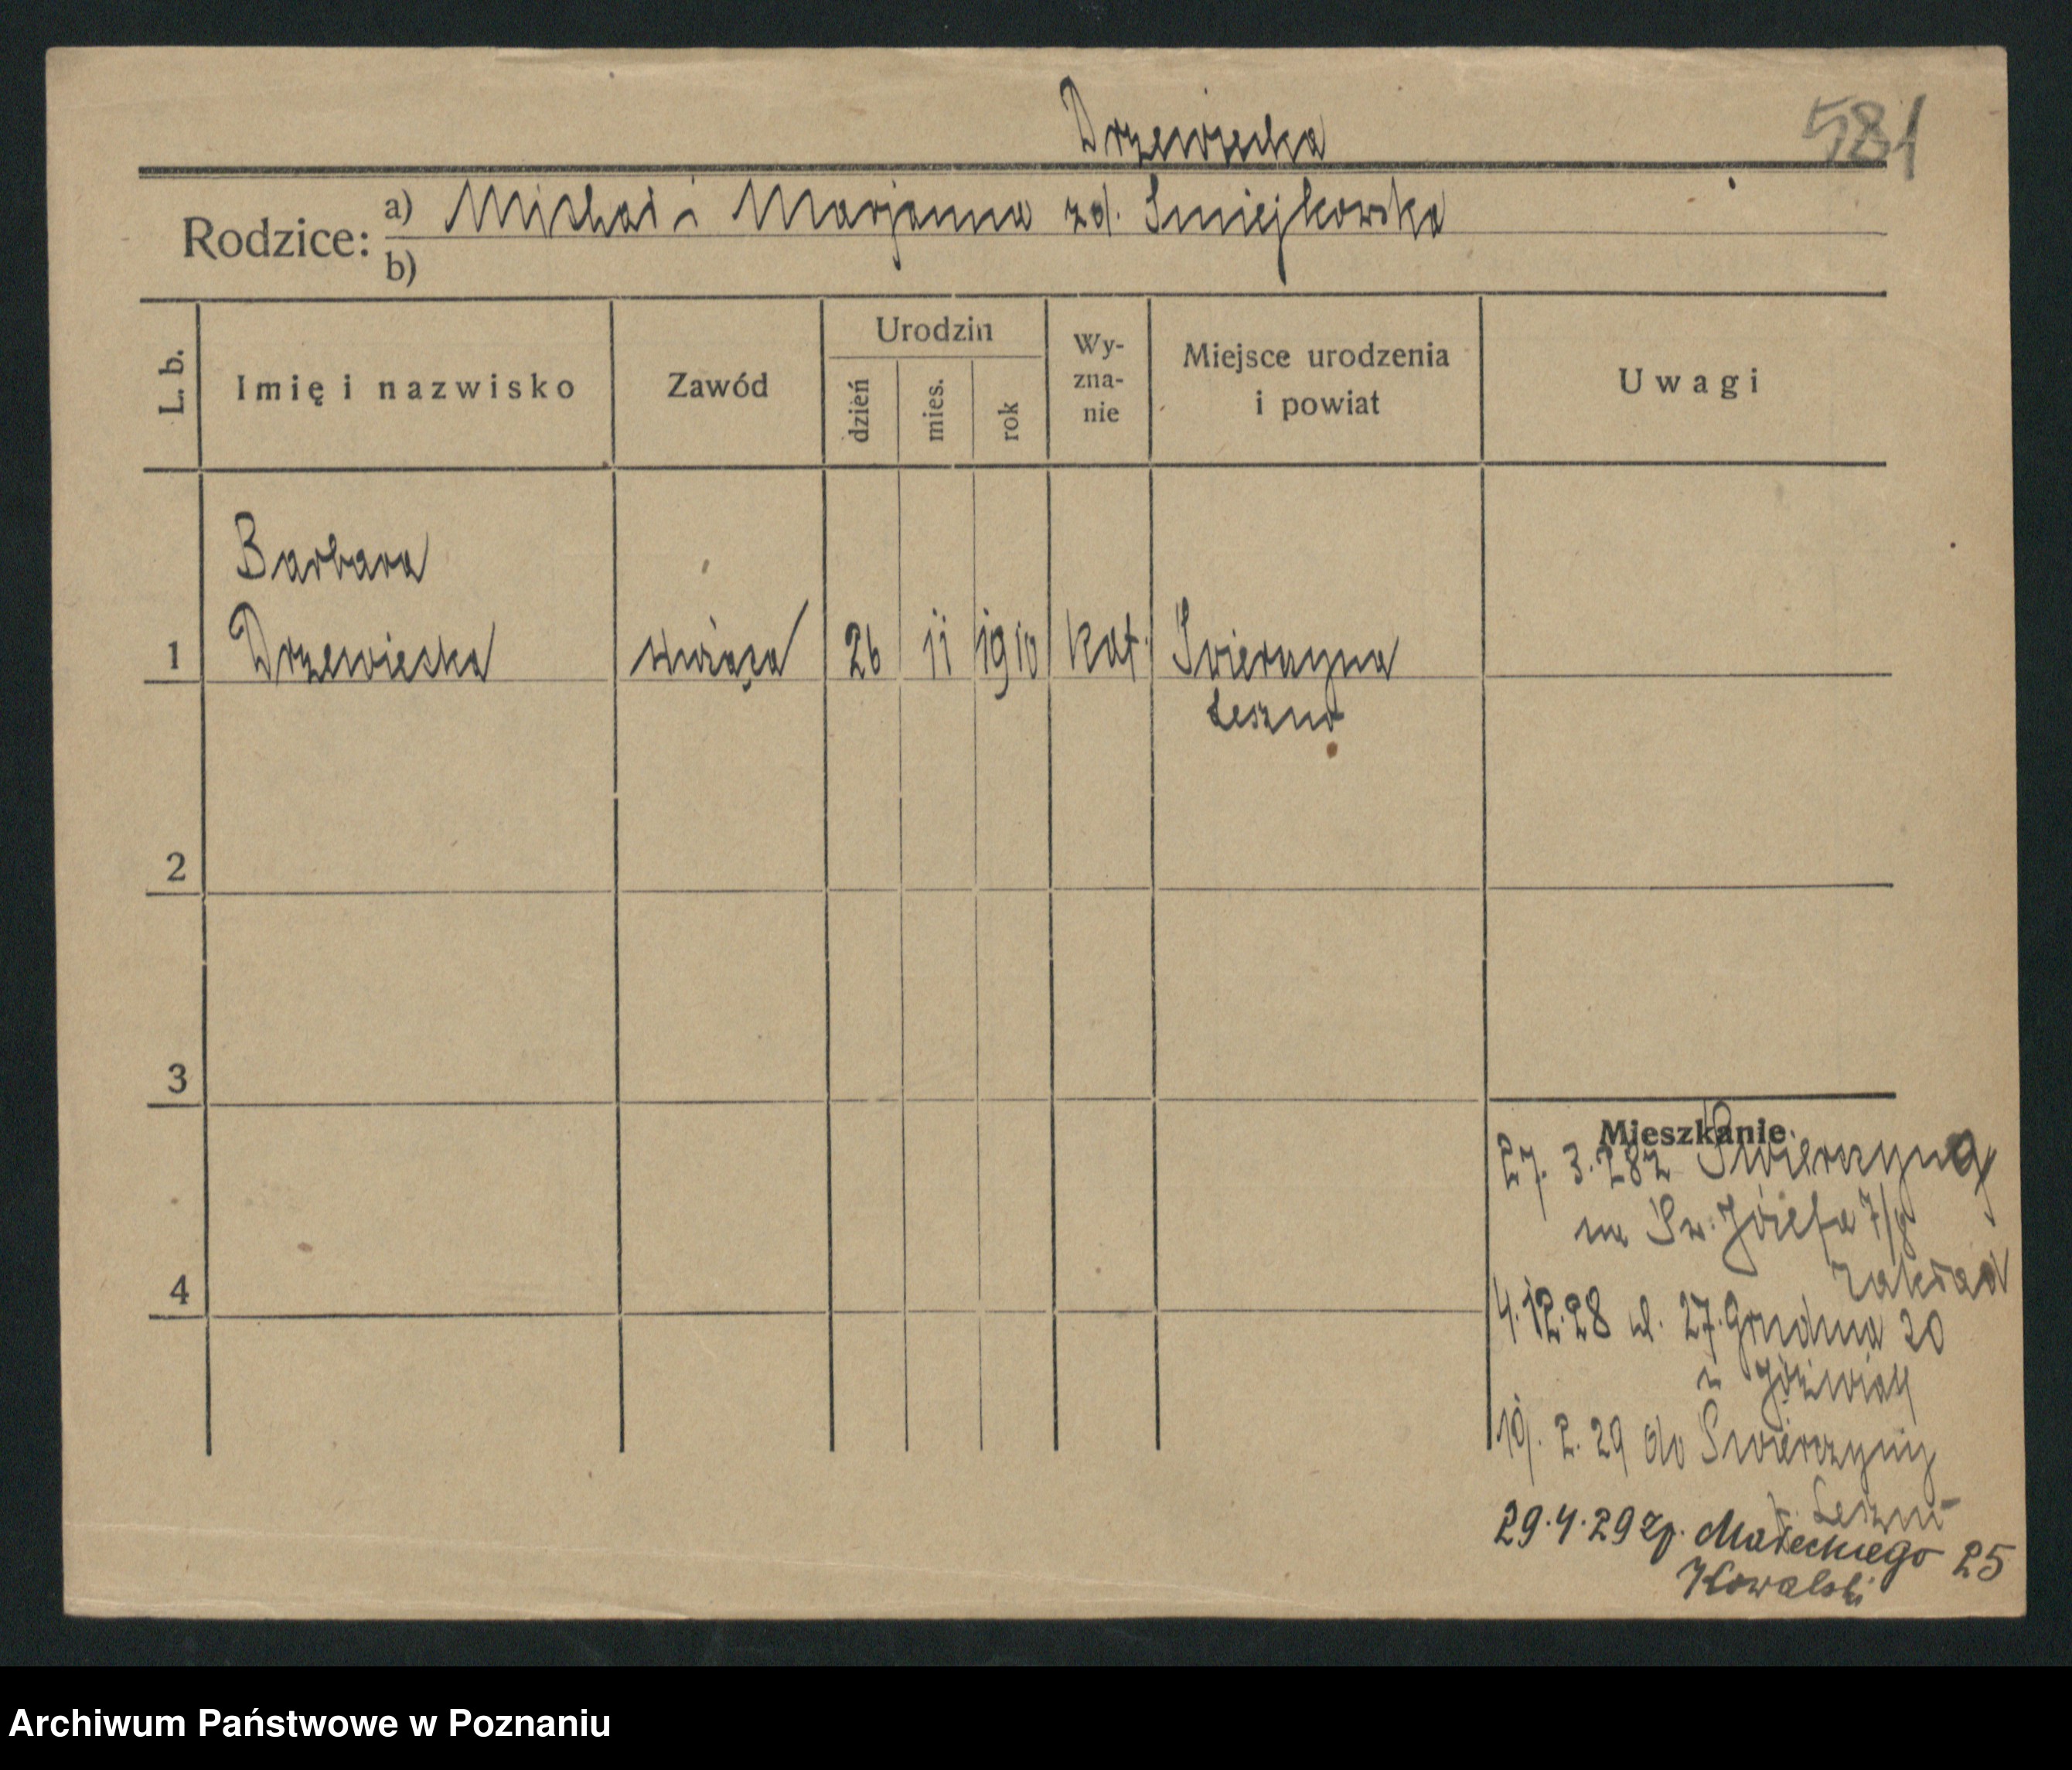 Drzewiecka
581
Rodzice: a) Michał i Marjanna zd. Śmiejkowska
b)
L. b.
Imię i nazwisko
Zawód
Urodzin
dzień
mies.
rok
Wy-
zna-
nie
Miejsce urodzenia
i powiat
Uwagi
Barbara
1 Drzewiecka służąca 26 11 1910 kat. Świerczyna
Leszno
2
3
4
Mieszkanie
27. 3. 28 z Świerczyny
na Św. Józefa 7/8
zakład
4.12.28 ul. 27. Grudnia 20
19. 2. 29 do Świerczyny
Leszno
29.4.29 zp. Małeckiego 25
Kowalski
Archiwum Państwowe w Poznaniu